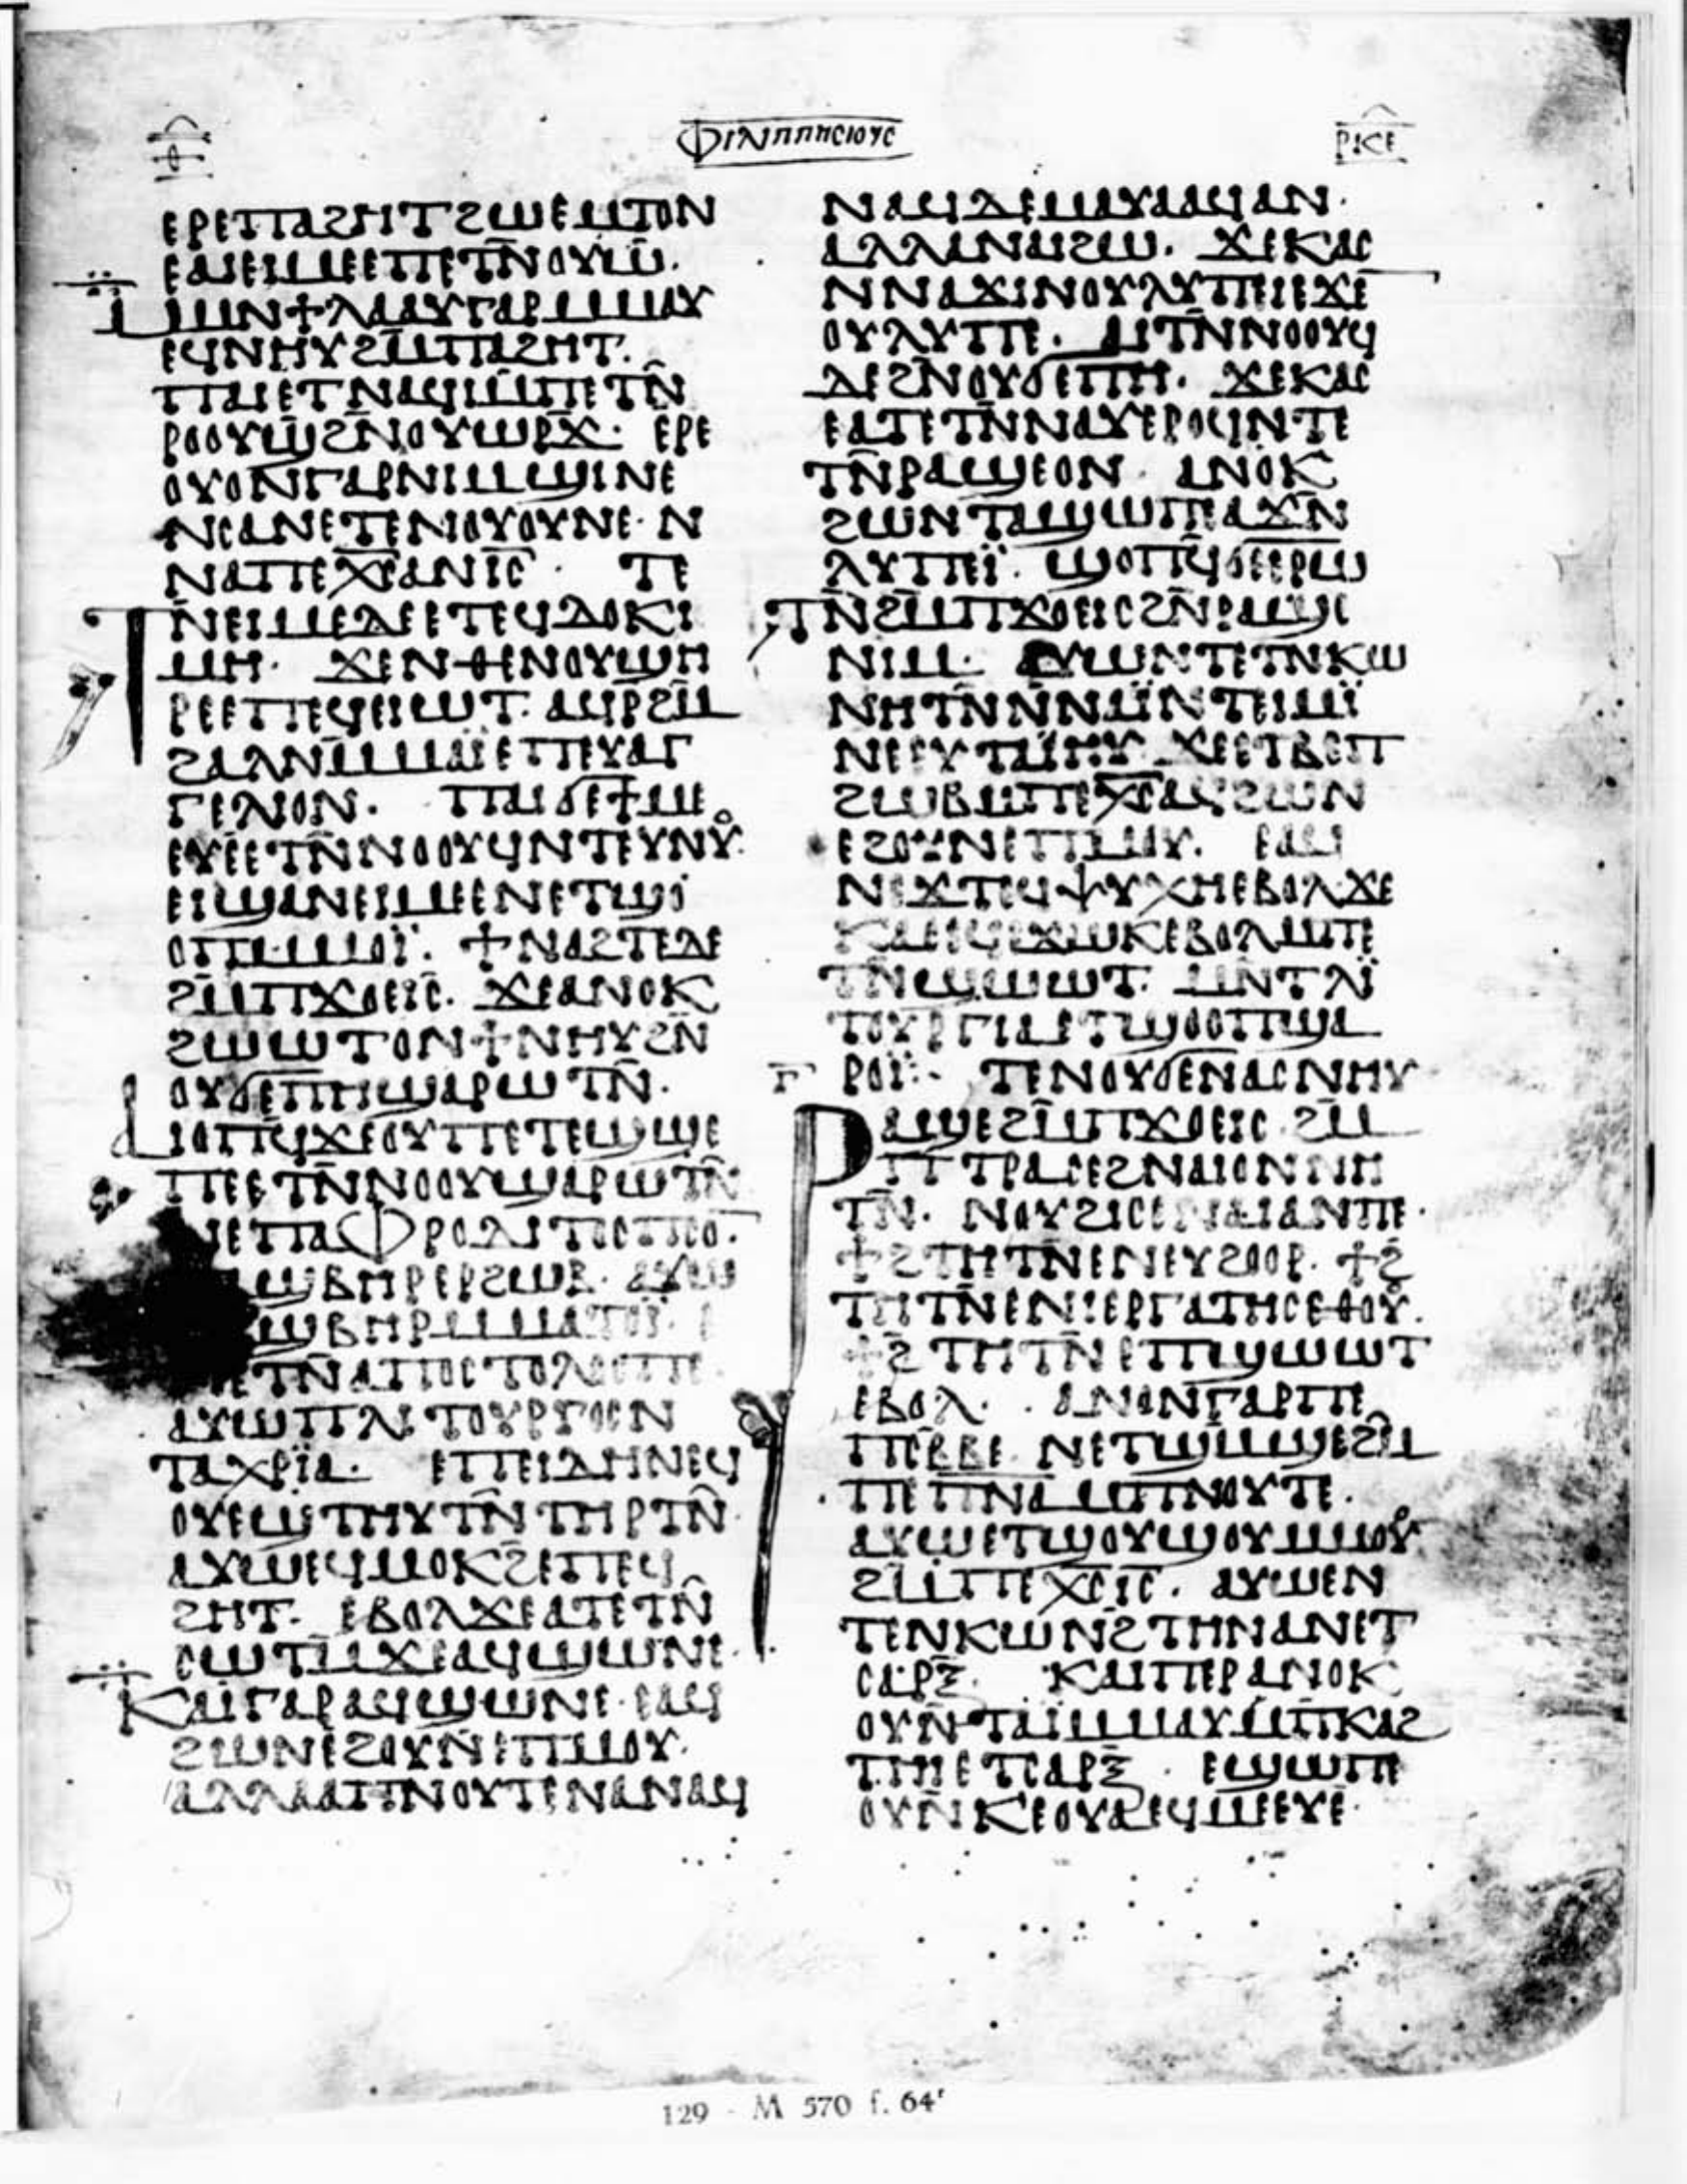 ⲑ
ⲪⲒⲖⲒⲠⲠⲎⲤⲒⲞⲨⲤ
ⲣⲕⲉ
ⲉⲣⲉⲡⲁϩⲏⲧϩⲱⲉⲙⲧⲟⲛ
ⲉⲁⲓⲉⲓⲙⲉⲉⲡⲉⲧⲛ̄ⲟⲩⲱ̄.
ⲙⲙⲛϯⲗⲁⲁⲩⲅⲁⲣⲙⲙⲁⲩ
ⲉϥⲛⲏⲩϩⲙ̄ⲡⲁϩⲏⲧ.
ⲡⲁⲓⲉⲧⲛⲁϥⲓⲙ̄ⲡⲉⲧⲛ̄
ⲣⲟⲟⲩϣϩⲛ̄ⲟⲩⲱⲣϫ· ⲉⲣⲉ
ⲟⲩⲟⲛⲅⲁⲣⲛⲓⲙϣⲓⲛⲉ
ⲛⲥⲁⲛⲉⲧⲉⲛⲟⲩⲟⲩⲛⲉ· ⲛ
ⲛⲁⲡⲉⲭ̄ⲥ̄ⲁⲛⲓ̄ⲥ̄ · ⲧⲉ
ⲧⲛⲉⲓⲙⲉⲇⲉⲉⲧⲉϥⲇⲟⲕⲓ
ⲙⲏ· ϫⲉⲛⲑⲉⲛⲟⲩϣⲏ
ⲣⲉⲉⲡⲉϥⲉⲓⲱⲧ· ⲁϥⲣϩⲙ̄
ϩⲁⲗⲛⲙ̄ⲙⲁⲓ̈ⲉⲡⲉⲩⲁⲅ
ⲅⲉⲗⲟⲛ. ⲡⲁⲓϭⲉϯⲙⲉ
ⲉⲩⲉⲉⲧⲛ̄ⲛⲟⲟⲩϥⲛⲧⲉⲩⲛⲟⲩ·
ⲉⲓϣⲁⲛⲉⲓⲙⲉⲉⲛⲉⲧϣⲟ
ⲟⲡⲙⲙⲟⲓ̈. ϯⲛⲁϩⲧⲉⲇⲉ
ϩⲙⲡϫⲟⲉⲓⲥ̄. ϫⲉⲁⲛⲟⲕ
ϩⲱⲱⲧⲟⲛϯⲛⲏⲩϩⲛ̄
ⲟⲩϭⲉⲡⲏϣⲁⲣⲱⲧⲛ̄.
ⲁⲓⲟⲡϥϫⲉⲟⲩⲡⲉⲧⲉϣϣⲉ
ⲡⲉⲉⲧⲛ̄ⲛⲟⲟⲩϣⲁⲣⲱⲧⲛ̄
ⲛⲉⲡⲁⲫⲣⲟⲇⲓⲧⲟⲥⲡⲥⲟ̄
ϣⲃⲏⲣⲉⲣϩⲱⲃ. ⲁⲩⲱ
ϣⲃⲏⲣⲙⲙⲁⲧⲟⲓ̈.
ⲡⲉⲧⲛ̄ⲁⲡⲟⲥⲧⲟⲗⲟⲥⲡⲉ.
ⲁⲩⲱⲡⲗⲓⲧⲟⲩⲣⲅⲟⲥⲛ
ⲧⲁⲭⲣⲓ̈ⲁ. ⲉⲡⲉⲓⲇⲏⲛⲉϥ
ⲟⲩⲉϣⲧⲏⲩⲧⲛ̄ⲧⲏⲣⲧⲛ̄
ⲁⲩⲱⲉϥⲙⲟⲕϩⲉⲡⲉϥ
ϩⲏⲧ. ⲉⲃⲟⲗϫⲉⲁⲧⲉⲧⲛ̄
ⲥⲱⲧⲙ̄ϫⲉⲁϥϣⲱⲛⲉ·
ⲕⲁⲓⲅⲁⲣⲁϥϣⲱⲛⲉ· ⲉⲁϥ
ϩⲱⲛⲉϩⲟⲩⲛⲉⲡⲙⲟⲩ.
ⲁⲗⲗⲁⲁⲡⲛⲟⲩⲧⲉⲛⲁⲛⲁϥ
ⲛⲁϥⲇⲉⲙⲁⲩⲁⲁϥⲁⲛ·
ⲁⲗⲗⲁⲛⲁⲓϩⲱ. ϫⲉⲕⲁⲥ
ⲛⲛⲁϫⲓⲛⲟⲩⲗⲩⲡⲏⲉϫⲉ̄
ⲟⲩⲗⲩⲡⲏ. ⲁⲓⲧⲛ̄ⲛⲟⲟⲩϥ
ⲇⲉϩⲛ̄ⲟⲩϭⲉⲡⲏ. ϫⲉⲕⲁⲥ
ⲉⲁⲧⲉⲧⲛ̄ⲛⲁⲩⲉⲣⲟϥⲛⲧⲉ
ⲧⲛ̄ⲣⲁϣⲉⲟⲛ· ⲁⲛⲟⲕ
ϩⲱⲛⲧⲁϣⲱⲡⲉⲁϫⲛ̄
ⲗⲩⲡⲏⲓ̈· ϣⲟⲡϥϭⲉⲉⲣⲱ
ⲧⲛ̄ϩⲙ̄ⲡϫⲟⲉⲓⲥϩⲛ̄ⲣⲁϣⲉ
ⲛⲓⲙ. ⲁⲩⲱⲛⲧⲉⲧⲛⲕⲱ
ⲛⲏⲧⲛ̄ⲛ̄ⲛⲁⲓ̈ⲛⲧⲉⲓⲙⲓ̈
ⲛⲉⲉⲩⲧⲁⲓ̈ⲏⲩ ϫⲉⲉⲧⲃⲉⲡ
ϩⲱⲃⲙⲡⲉⲭ̄ⲥ̄ⲁϥϩⲱⲛ
ⲉϩⲟⲩⲛⲉⲡⲙⲟⲩ. ⲉⲁϥ
ⲛⲉϫⲧⲉϥⲯⲩⲭⲏⲉⲃⲟⲗϫⲉ
ⲕⲁⲥⲉϥⲉϫⲱⲕⲉⲃⲟⲗⲙⲡⲉ
ⲧⲛ̄ϣⲱⲱⲧ· ⲙⲛⲧⲗⲓ̈
ⲧⲟⲩⲣⲅⲓⲁⲉⲧϣⲟⲟⲡϣⲁ
ⲣⲟⲓ̈:- ⲧⲉⲛⲟⲩϭⲉⲛⲁⲥⲛⲏⲩ
ⲣⲁϣⲉϩⲙ̄ⲡϫⲟⲉⲓⲥ· ϩⲙ
ⲡⲧⲣⲁⲥⲉϩⲛⲁⲓⲟⲛⲛⲏ
ⲧⲛ̄. ⲛⲟⲩϩⲓⲥⲉⲛⲁⲓⲁⲛⲡⲉ·
ϯϩⲧⲏⲧⲛ̄ⲉⲛⲉⲩϩⲟⲟⲣ· ϯϩ
ⲧⲏⲧⲛ̄ⲉⲛⲉⲣⲅⲁⲧⲏⲥⲉⲑⲟⲟⲩ·
ϯϩⲧⲏⲧⲛⲉⲡϣⲱⲱⲧ
ⲉⲃⲟⲗ. ⲁⲛⲟⲛⲅⲁⲣⲡⲉ
ⲡⲥⲃⲃⲉ ⲛⲉⲧϣⲙϣⲉϩⲙ̄
ⲡⲉⲡ̄ⲛ̄ⲁ̄ⲙⲡⲛⲟⲩⲧⲉ.
ⲁⲩⲱⲉⲧϣⲟⲩϣⲟⲩⲙⲙⲟⲟⲩ
ϩⲙ̄ⲡⲉⲭ̄ⲥ̄ⲓ̄ⲥ̄. ⲁⲩⲱⲉⲛ
ⲧⲉⲛⲕⲱⲛϩⲧⲏⲛⲁⲛⲉⲧ
ⲥⲁⲣⲝ· ⲕⲁⲓⲡⲉⲣⲁⲛⲟⲕ
ⲟⲩⲛϯⲧⲁⲓ̈ⲙⲙⲁⲩⲙⲡⲕⲁϩ
ⲧⲏⲉⲧⲥⲁⲣⲝ · ⲉϣⲱⲡⲉ
ⲟⲩⲛ̄ⲕⲉⲟⲩⲁⲉϥⲙⲉⲉⲩⲉ·
129 - M 570 f. 64r